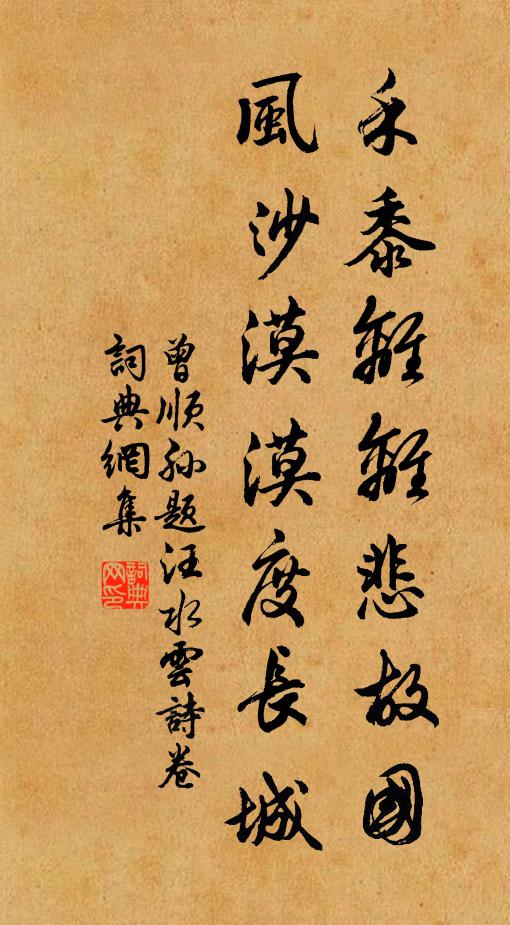 禾黍離離悲故國
風沙漠漠度長城
曾順孫題汪水雲詩卷
詞典網集
詞典网印